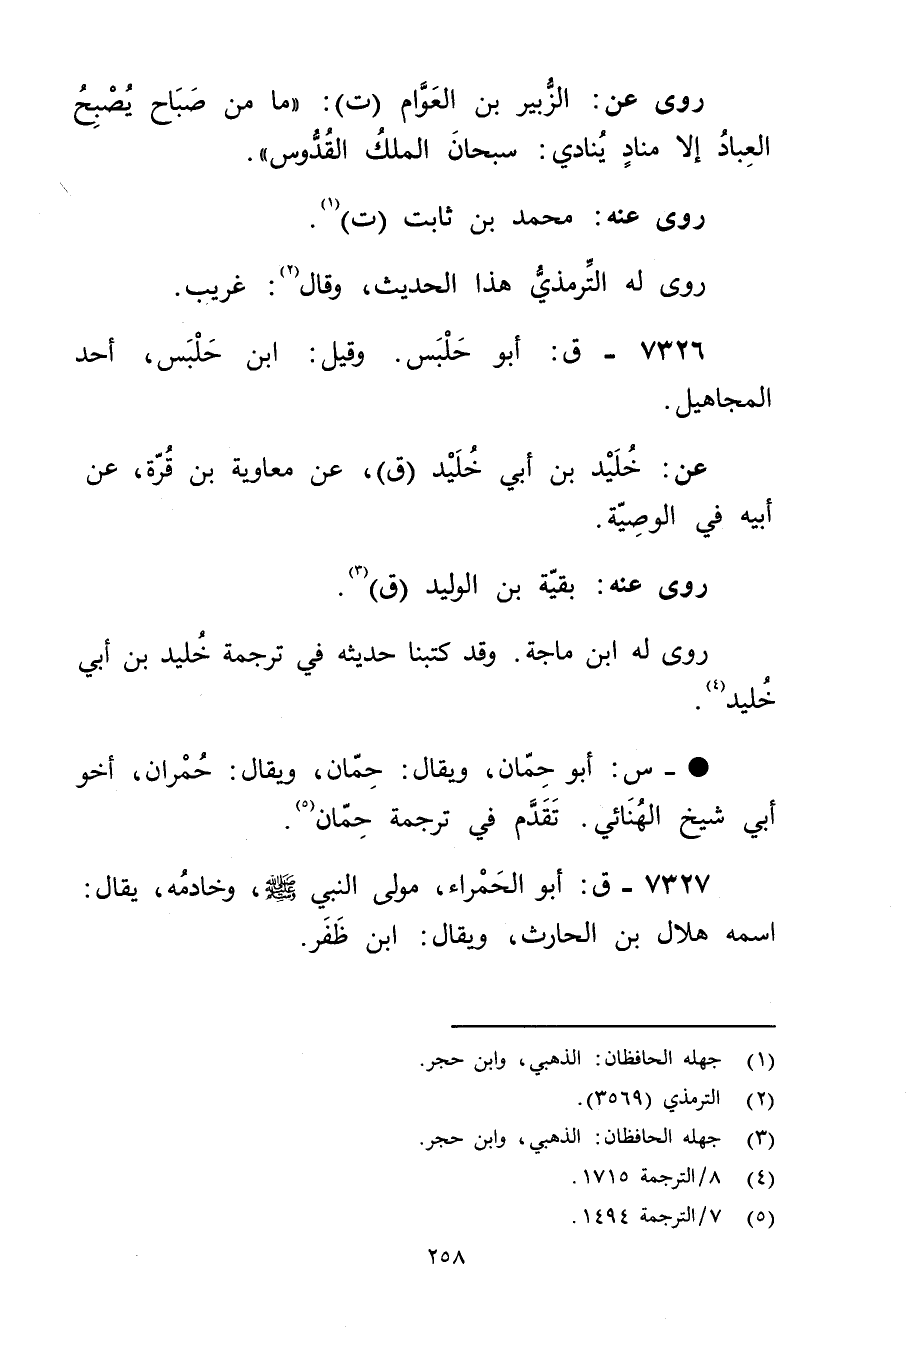 روى عن: الزُّبير بن العَوَّام (ت): «ما من صَبَاح يُصْبِحُ
العِبادُ إلا منادٍ يُنادي: سبحانَ الملكُ القُدُّوس».
روى عنه: محمد بن ثابت (ت)(١).
روى له التِّرمذيُّ هذا الحديث، وقال(٢): غريب.
٧٣٢٦ - ق: أبو حَلْبَس. وقيل: ابن حَلْبَس، أحد
المجاهيل.
عن: خُلَيْد بن أبي خُلَيْد (ق)، عن معاوية بن قُرّة، عن
أبيه في الوصِيّة.
روى عنه: بقيّة بن الوليد (ق)(٣).
روى له ابن ماجة. وقد كتبنا حديثه في ترجمة خُليد بن أبي
خُليد(٤).
● - س: أبو حِمّان، ويقال: حِمّان، ويقال: حُمْران، أخو
أبي شيخ الهُنَائي. تَقَدَّم في ترجمة حِمّان(٥).
٧٣٢٧ - ق: أبو الحَمْراء، مولى النبي ﷺ، وخادمُه، يقال:
اسمه هلال بن الحارث، ويقال: ابن ظَفَر.
(١) جهله الحافظان: الذهبي، وابن حجر.
(٢) الترمذي (٣٥٦٩).
(٣) جهله الحافظان: الذهبي، وابن حجر.
(٤) ٨/الترجمة ١٧١٥.
(٥) ٧/الترجمة ١٤٩٤.
٢٥٨